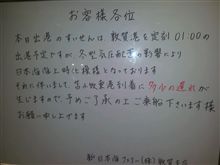 お客様各位
本日出港のすいせんは、敦賀港を定刻01:00の
出港予定ですが、冬型気圧配置の影響により
日本海海上時化模様となっております
それに伴いまして、苫小牧東港到着に多少の遅れが
生じますので、予めご了承の上ご乗船下さいます様
お願い申し上げます
新日本海フェリー(株)敦賀支店